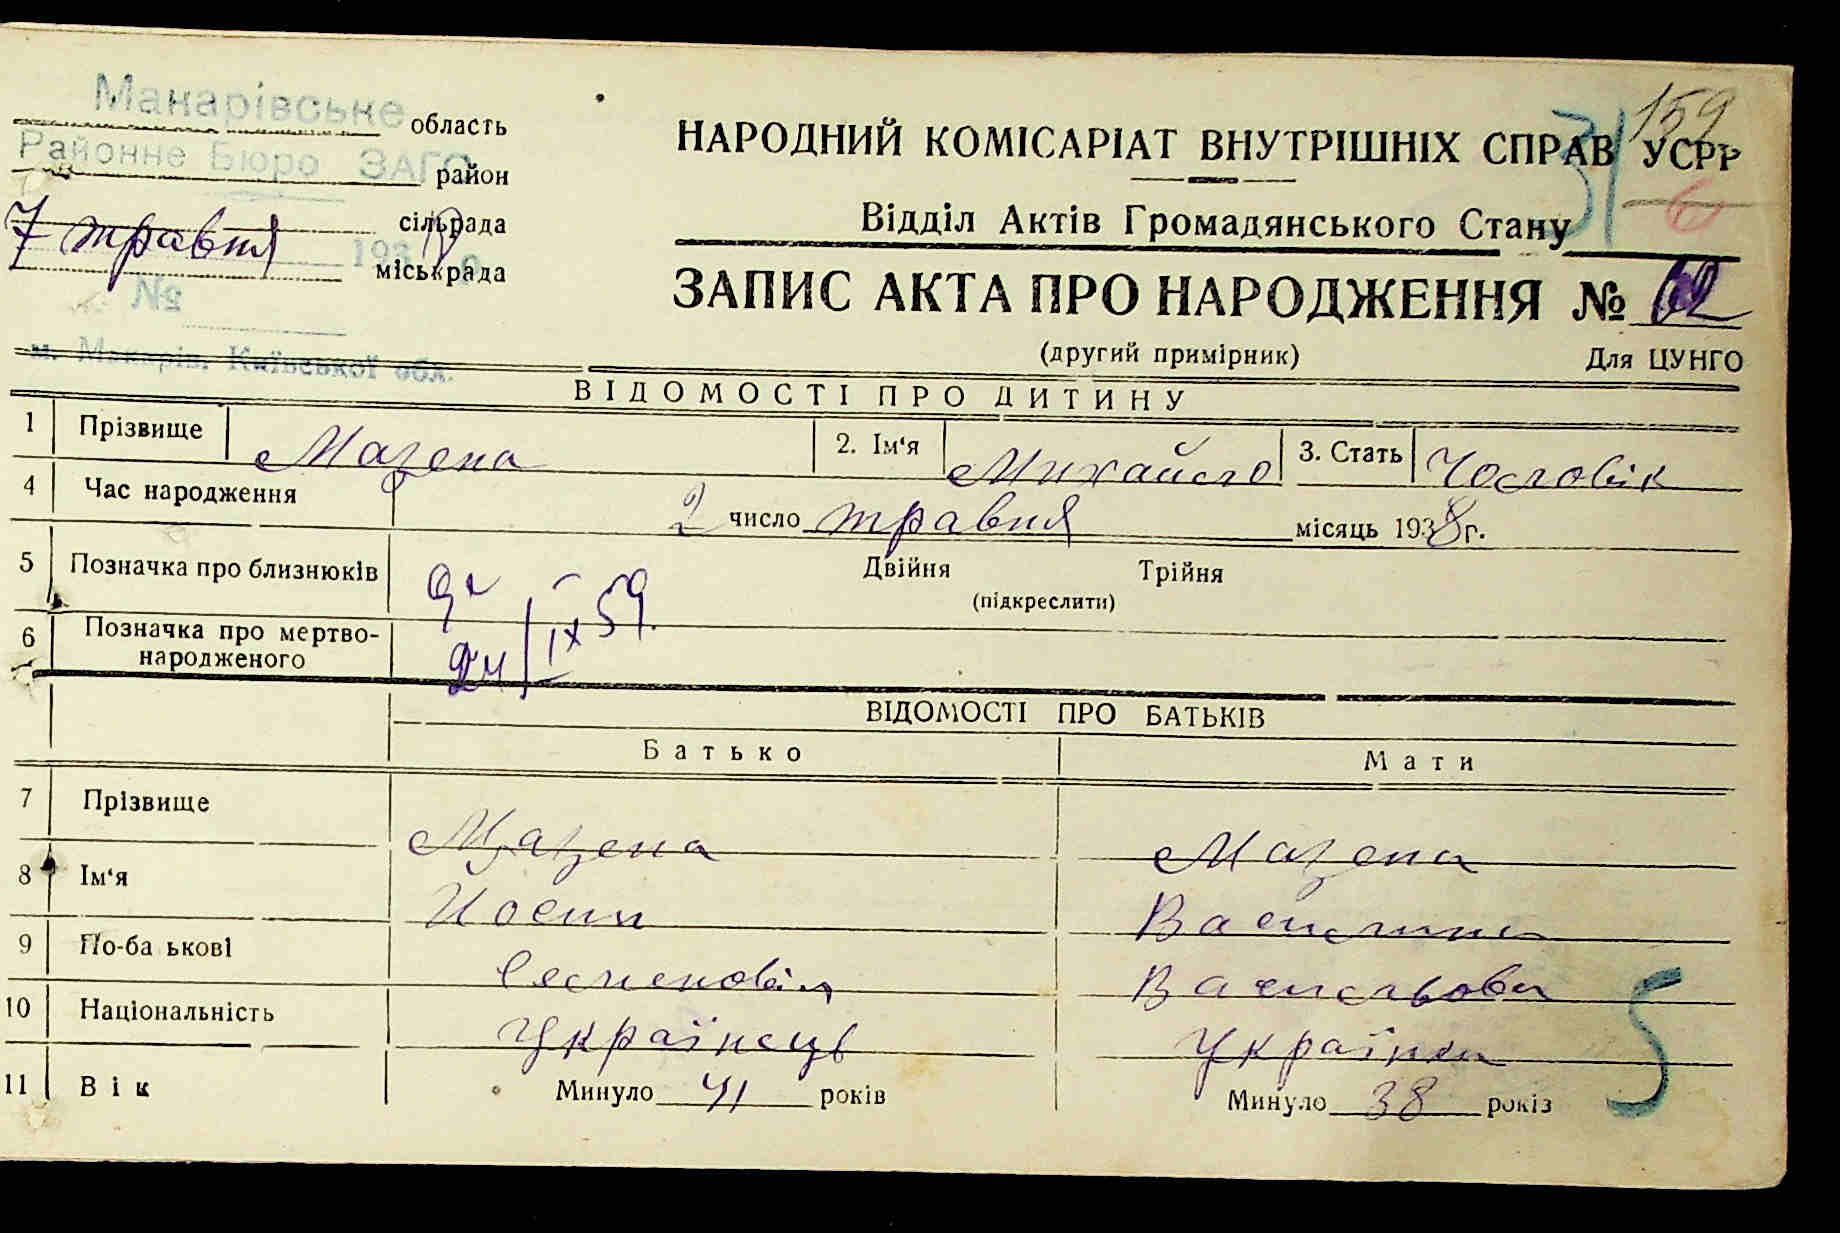 Макарівське
область
Районне Бюро ЗАГС
район
сільрада
7 травня 1938 р.
міськрада
№
м. Макарів, Київської обл.
159
31
6
НАРОДНИЙ КОМІСАРІАТ ВНУТРІШНІХ СПРАВ УСРР
Відділ Актів Громадянського Стану
ЗАПИС АКТА ПРО НАРОДЖЕННЯ № 62
(другий примірник) Для ЦУНГО
ВІДОМОСТІ ПРО ДИТИНУ
1 Прізвище Мазепа 2. Ім‘я Михайло 3. Стать Чоловік
4 Час народження 2 число травня місяць 1938 г.
5 Позначка про близнюків Двійня Трійня
(підкреслити)
6 Позначка про мертво-
народженого
24/IX 59.
ВІДОМОСТІ ПРО БАТЬКІВ
Батько Мати
7 Прізвище Мазепа Мазепа
8 Ім‘я Йосип Василина
9 По-ба ькові Семенович Васильовна
10 Національність Українець Українка
11 Вік Минуло 41 років Минуло 38 років
5